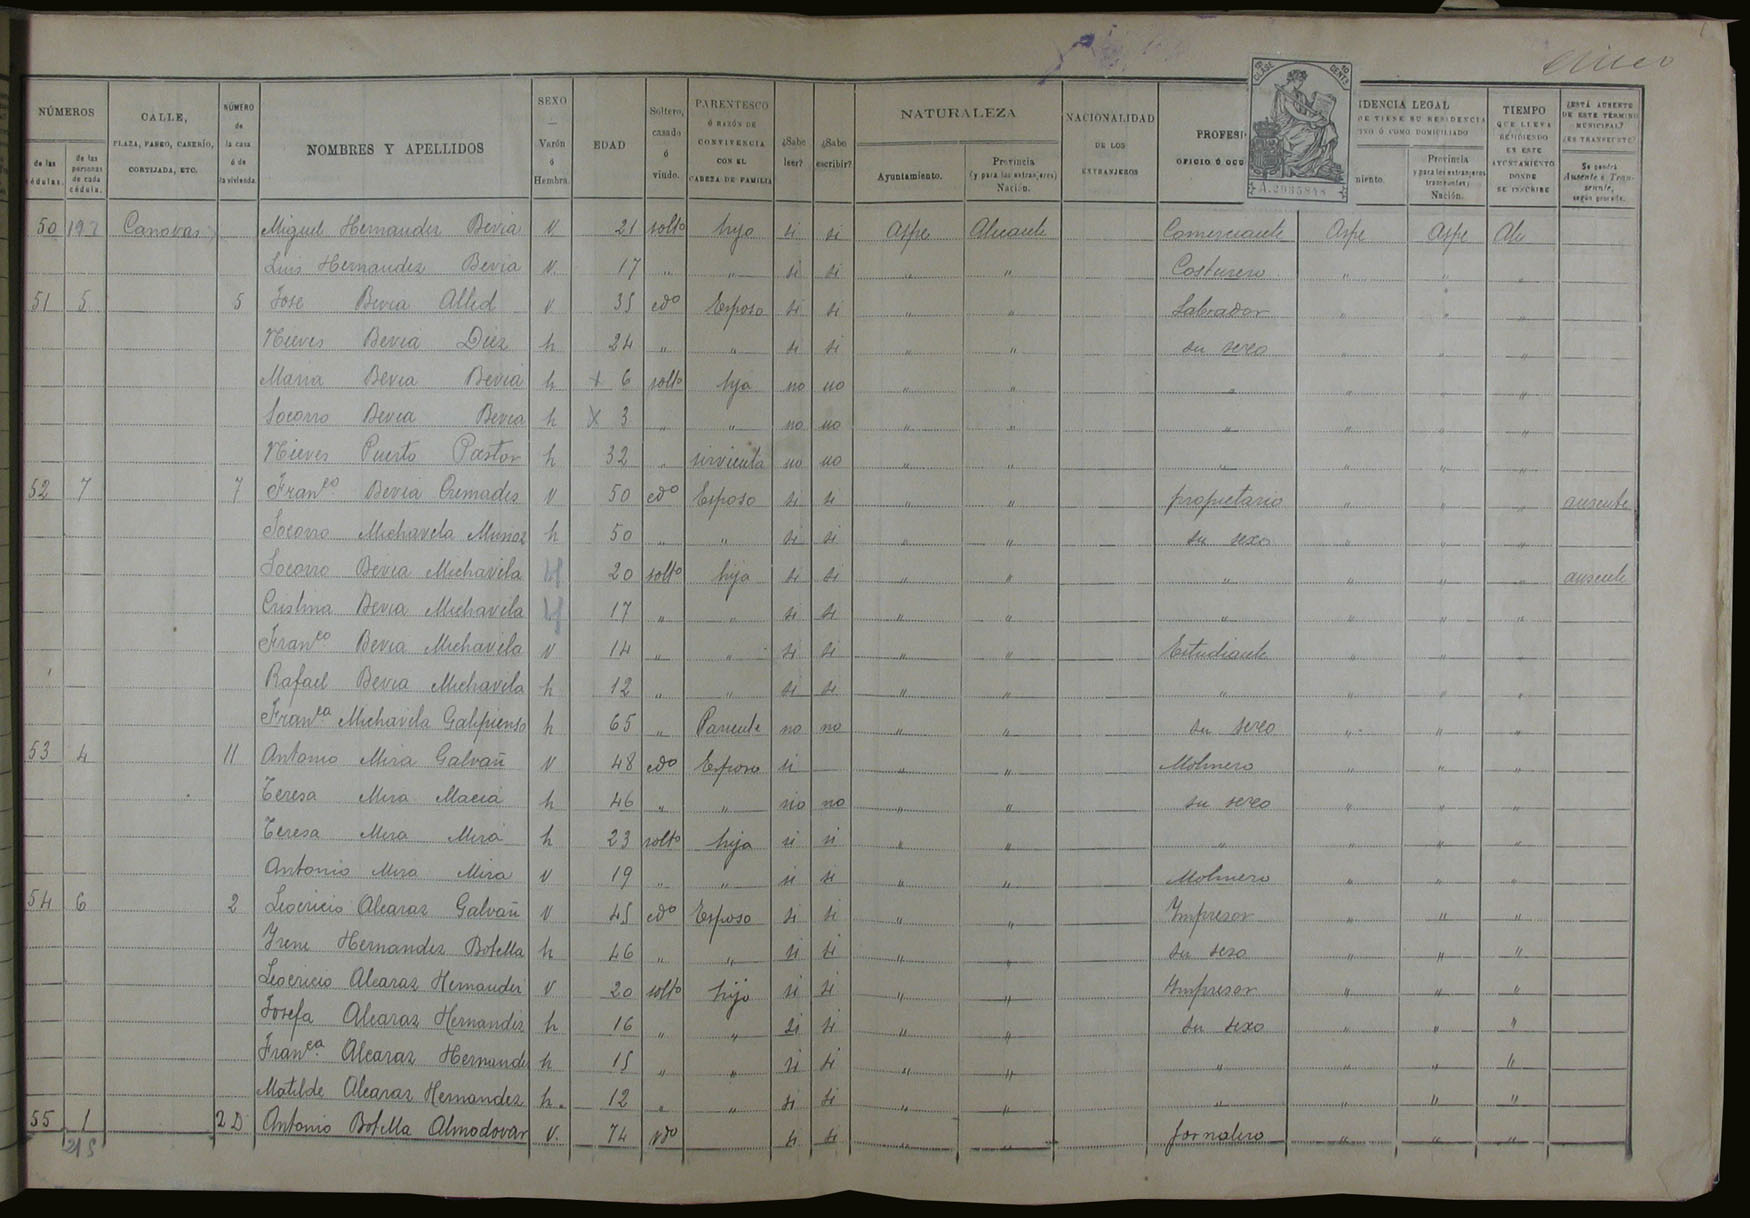 cinco
8ª CLASE 10 CENTS
A.2935848
NÚMEROS
de las cédulas.
de las personas de cada cédula.
CALLE,
PLAZA, PASEO, CASERÍO,
CORTIJADA, ETC.
NÚMERO de la casa ó de la vivienda.
NOMBRES Y APELLIDOS
SEXO — Varón ó Hembra.
EDAD
Soltero, casado ó viudo.
PARENTESCO Ó RAZÓN DE CONVIVENCIA CON EL CABEZA DE FAMILIA
¿Sabe leer?
¿Sabe escribir?
NATURALEZA
Ayuntamiento.
Provincia (y para los extranjeros) Nación.
NACIONALIDAD DE LOS EXTRANJEROS
PROFESI
OFICIO Ó OCU
IDENCIA LEGAL
DE TIENE SU RESIDENCIA
INO Ó COMO DOMICILIADO
miento.
Provincia y para los extranjeros transeuntes) Nación.
TIEMPO QUE LLEVA RESIDIENDO EN ESTE AYUNTAMIENTO DONDE SE INSCRIBE
¿ESTÁ AUSENTE DE ESTE TERMINO MUNICIPAL? ¿ES TRANSEUNTE?
Se pondrá Ausente ó Transeunte, según proceda.
50 197 Canovas Miguel Hernandez Bevia V 21 solto hijo si si Aspe Alicante Comerciante Aspe Aspe Ale
Luis Hernandez Bevia V. 17 " " si si " " Costurero " " "
51 5 5 Jose Bevia Alled V 35 cdo Esposo si si " " Labrador " " "
Nieves Bevia Diez h 24 " " si si " " su sexo " " "
Maria Bevia Bevia h x 6 solto hija no no " " " " " "
Socorro Bevia Bevia h x 3 " " no no " " " " " "
Nieves Puerto Pastor h 32 " sirvienta no no " " " " " "
52 7 7 Franco Bevia Cremades V 50 cdo Esposo si si " " propietario " " " ausente
Socorro Michavila Muñoz h 50 " " si si " " su sexo " " "
Socorro Bevia Michavila H 20 solto hija si si " " " " " " ausente
Cristina Bevia Michavila H 17 " " si si " " " " " "
Franco Bevia Michavila V 14 " " si si " " Estudiante " " "
Rafael Bevia Michavila h 12 " " si si " " " " " "
Franca Michavila Galipienso h 65 " Pariente no no " " su sexo " " "
53 4 11 Antonio Mira Galvañ V 48 cdo Esposo si " " Molinero " " "
Teresa Mira Macia h 46 " " no no " " su sexo " " "
Teresa Mira Mira h 23 solto hija si si " " " " " "
Antonio Mira Mira V 19 " " si si " " Molinero " " "
54 6 2 Leoncio Alcaraz Galvañ V 45 cdo Esposo si si " " Impresor " " "
Irene Hernandez Botella h 46 " " si si " " su sexo " " "
Leoncio Alcaraz Hernandez V 20 solto hijo si si " " Impresor " " "
Josefa Alcaraz Hernandez h 16 " " si si " " su sexo " " "
Franca Alcaraz Hernande h 15 " " si si " " " " " "
Matilde Alcaraz Hernandez h. 12 " " si si " " " " " "
55 1 2D Antonio Botella Almodovar V. 74 vdo si si " " Jornalero " " "
215